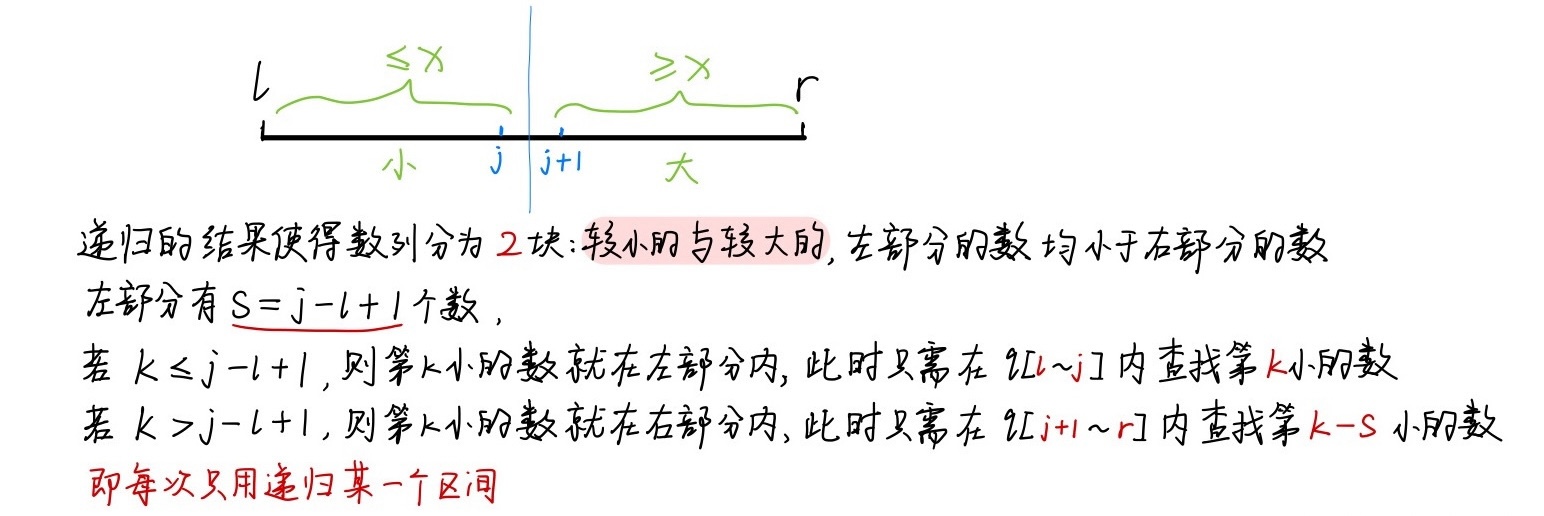 ≤x ≥x
l r
小 j j+1 大
递归的结果使得数列分为2块:较小的与较大的,左部分的数均小于右部分的数
左部分有 S=j-l+1个数,
若 k≤j-l+1,则第k小的数就在左部分内,此时只需在 q[l~j]内查找第k小的数
若 k>j-l+1,则第k小的数就在右部分内,此时只需在 q[j+1~r]内查找第k-S小的数
即每次只用递归某一个区间